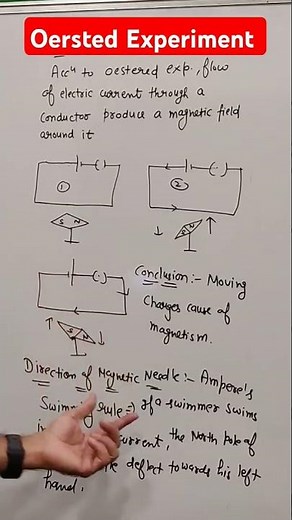 Oersted Experiment
Accⁿ to oestered exp., flow
of electric current through a
conductor produce a magnetic field
around it
1
2
S N
S N
S N
Conclusion:- Moving
Charges cause of
magnetism.
Direction of Magnetic Needle:- Ampere's
Swimming rule ⇒ If a swimmer swims
current, the North Pole of
deflect towards his left
hand.